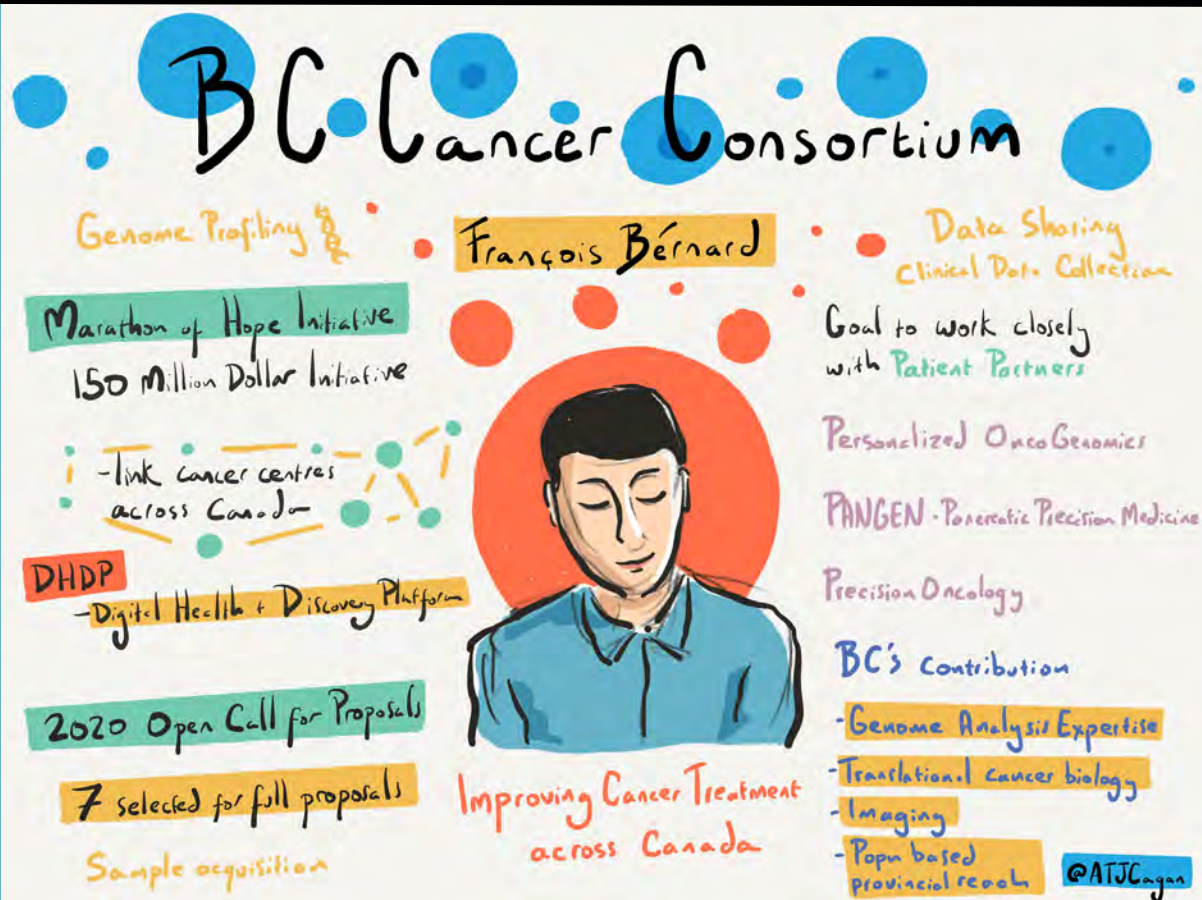 BC Cancer Consortium
Genome Profiling
Marathon of Hope Initiative
150 Million Dollar Initiative
-link cancer centres
across Canada
DHDP
-Digital Health + Discovery Platform
2020 Open Call for Proposals
7 selected for full proposals
Sample acquisition
François Bérnard
Improving Cancer Treatment
across Canada
Data Sharing
Clinical Data Collection
Goal to work closely
with Patient Partners
Personalized OncoGenomics
PANGEN - Pancreatic Precision Medicine
Precision Oncology
BC's Contribution
-Genome Analysis Expertise
-Translational cancer biology
-Imaging
-Popn based
provincial reach
@ATJCagan